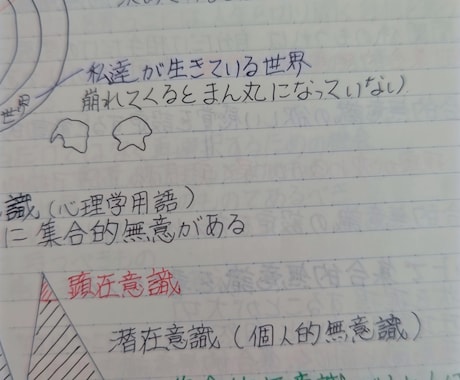 私達が生きている世界
世界
崩れてくるとまん丸になっていない
識(心理学用語)
に集合的無意がある
顕在意識
潜在意識(個人的無意識)